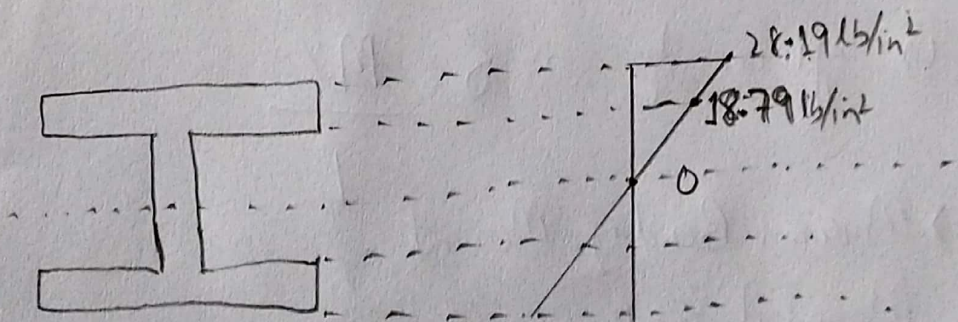 28.19 lb/in²
18.79 lb/in²
0